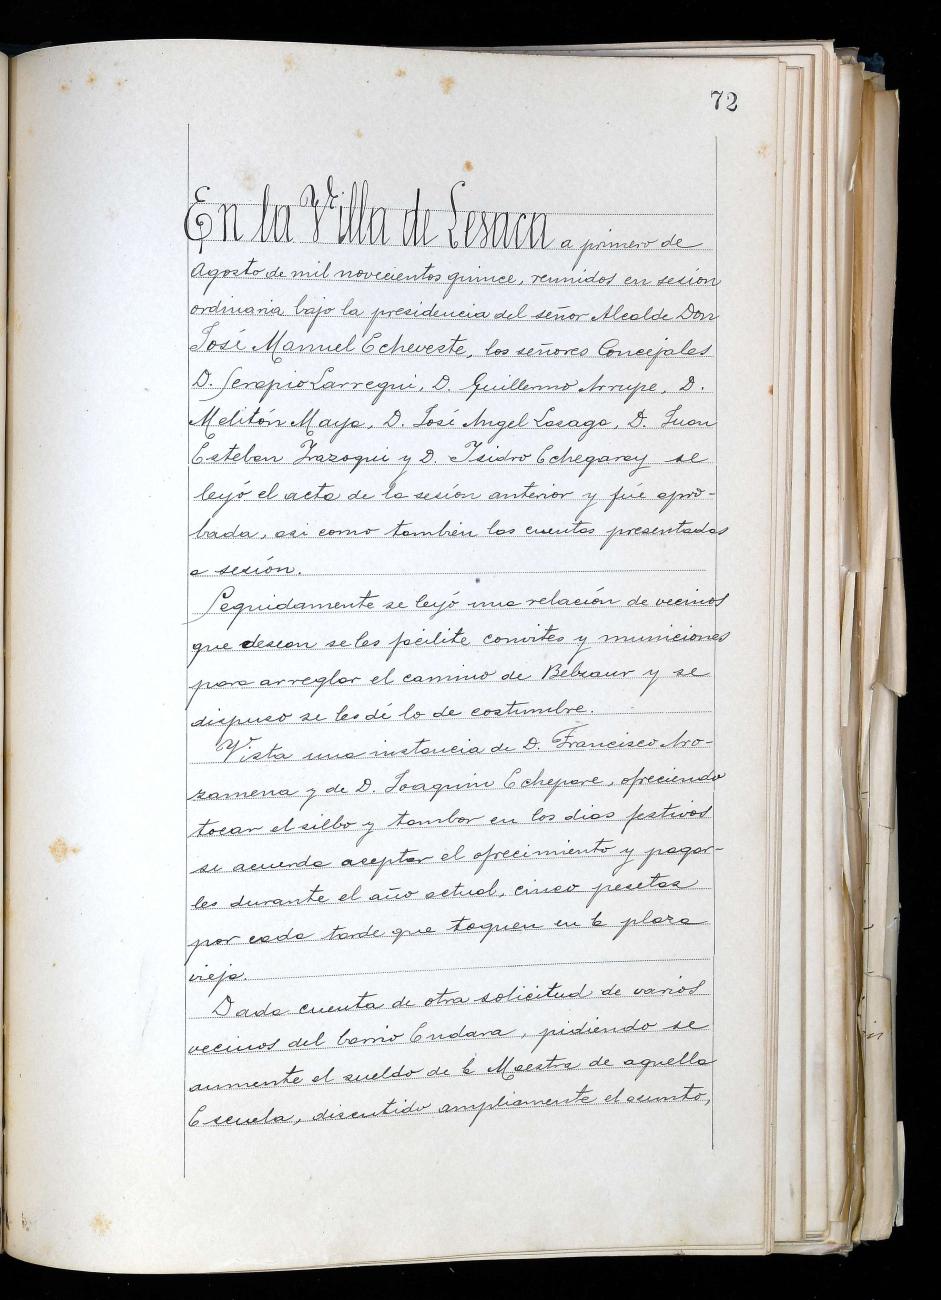 72
En la Villa de Lesaca a primero de
Agosto de mil novecientos quince, reunidos en sesión
ordinaria bajo la presidencia del señor Alcalde Don
José Manuel Echeveste, los señores Concejales
D. Serapio Larregui, D. Guillermo Arrupe, D.
Melitón Maya, D. José Angel Lasaga, D. Juan
Esteban Irazoqui y D. Isidro Echegaray se
leyó el acta de la sesión anterior y fúe apro-
bada, asi como tambien las cuentas presentadas
a sesión.
Seguidamente se leyó una relación de vecinos
que desean se les facilite convites y municiones
para arreglar el camino de Bebzaur y se
dispuso se les dé lo de costumbre.
Vista una instancia de D. Francisco Aro-
zamena y de D. Joaquin Echepare, ofreciendo
tocar el silbo y tambor en los dias festivos
se acuerda aceptar el ofrecimiento y pagar-
les durante el año actual, cinco pesetas
por cada tarde que toquen en la plaza
vieja.
Dada cuenta de otra solicitud de varios
vecinos del barrio Endara, pidiendo se
aumente el sueldo de la Maestra de aquella
Escuela, discutido ampliamente el asunto,